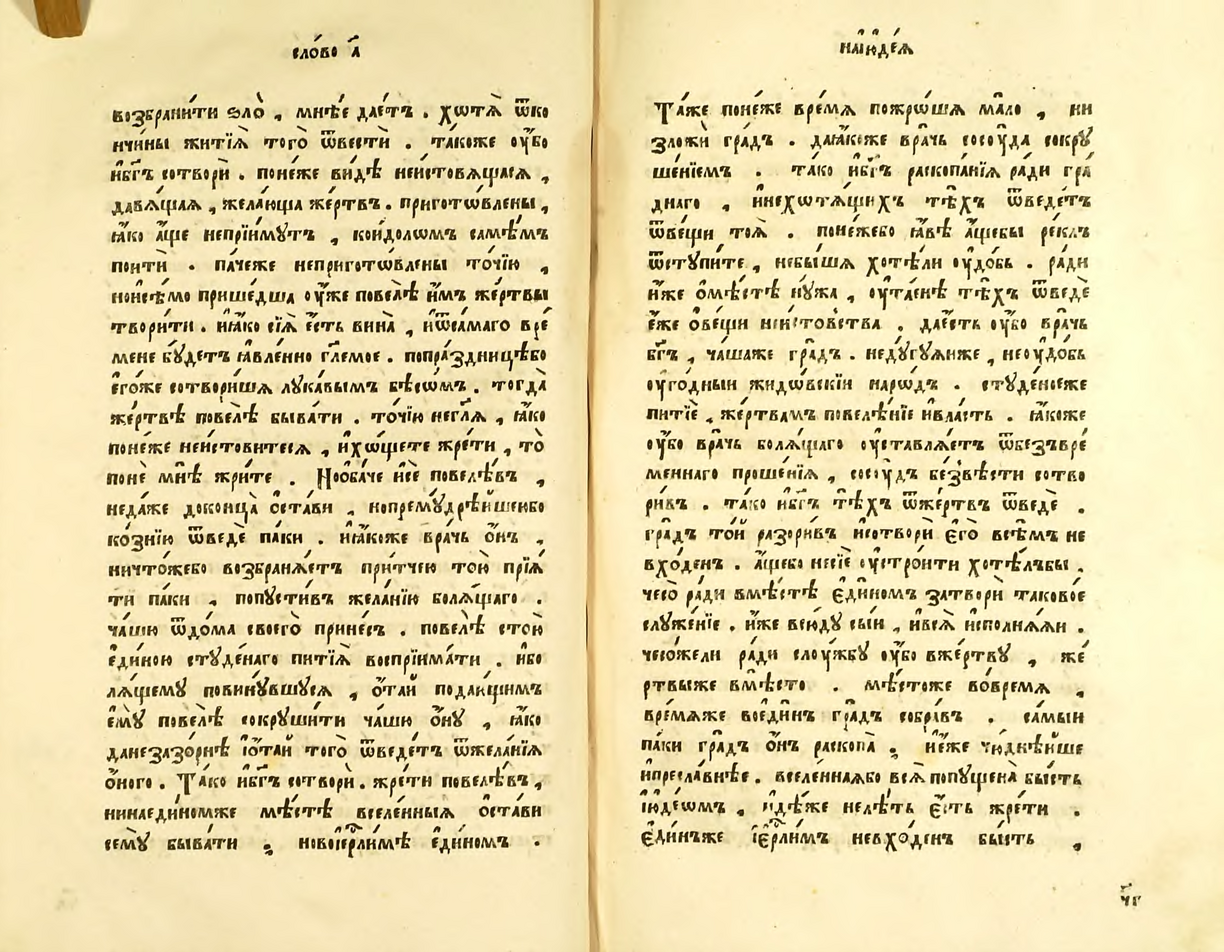 сло́во а҃
возбрани́ти ѕло̀ , мнѣ́е дае́тъ . хотѧ̀ ѿко
нчи́ны житїѧ̀ того̀ ѿвестѝ . та́коже оу҆̀бо
и҆бг҃ъ сотворѝ . поне́же ви́дѣ неи́стовѧщаѧсѧ ,
давѧ́щаѧ , жела́юща же́ртвъ . пригото́влены ,
ꙗ҆́ко а҆́ще непрїи́мꙋтъ , кои҆́дѡлѡмъ самѣ́мъ
поитѝ . па́чеже неприготѡ́влены то́чїю ,
нои҆сѣ́мо прише́дша оу҆жѐ повелѣ̀ и҆̀мъ же́ртвы
твори́ти . и҆ꙗ҆́ко сїѧ̀ є҆́сть вина̀ , и҆ѿсама́гѡ вре́
мене бꙋ́детъ ꙗ҆вле́нно гл҃емое . попра́здницѣбо
є҆го́же сотвори́шѧ лꙋка́вымъ бѣсѡ́мъ . тогда̀
же́ртвѣ повелѣ̀ быва́ти . то́чїю негл҃ѧ , ꙗ҆́ко
поне́же неи́стовитесѧ , и҆хѡ́щете жре́ти , то̀
понѐ мнѣ̀ жри́те . Ноѻба́че и҆сѐ повелѣ́въ ,
неда́же доконца̀ ѻ҆ста́ви , нопремꙋ́дрѣйшеюбо
ко́знїю ѿведѐ па́ки . и҆ꙗ҆́коже вра́чь ѻ҆́нъ ,
ничто́жебо возбранѧ́етъ при́тчею то́ю прїѧ́
ти па́ки , попꙋсти́въ жела́нїю болѧ́щаго .
ча́шю ѿдо́ма своего̀ прине́съ . повелѣ̀ сто́ю
є҆ди́ною стꙋде́наго питїѧ̀ воспрїима́ти . и҆бо
лѧ́щемꙋ повинꙋ́вшꙋсѧ , ѻ҆та́й подаю́щимъ
є҆мꙋ̀ повелѣ̀ сокрꙋши́ти ча́шю ѻ҆́нꙋ , ꙗ҆́ко
данезазо́рнѣ і҆ѻта́й того̀ ѿведе́тъ ѿжела́нїѧ
ѻ҆́ного . Та́ко и҆бг҃ъ сотворѝ . жре́ти повелѣ́въ ,
нинаеди́номже мѣ́стѣ вселе́нныѧ ѻ҆ста́ви
семꙋ̀ быва́ти , новоі҆ерⷭ҇ли́мѣ є҆ди́номъ .
наі҆юде́ѧ
Та́же поне́же вре́мѧ пожро́шѧ ма́ло , ни
зложѝ гра́дъ . даꙗ҆́коже вра́чь сосоу́да сокрꙋ
ше́нїемъ . та́ко и҆бг҃ъ раскопа́нїѧ ра́ди гра́
днаго , и҆нехотѧ́щихъ тѣ́хъ ѿведе́тъ
ѿве́щи тоѧ̀ . поне́жебо ꙗ҆́вѣ а҆́щебы ре́клъ
ѿстꙋпи́те , небы́шѧ хотѣ́ли оу҆до́бь . ра́ди
и҆́же ѻ҆мѣ́стѣ нꙋ́жа , оу҆таенѣ̀ тѣ́хъ ѿведѐ
є҆́же ѻ҆ве́щи неи́стовства . дае́сть оу҆̀бо вра́чь
бг҃ъ , ча́шаже гра́дъ . недꙋ́гꙋѧиже , неоу҆до́бь
оу҆го́дныи жидо́вскїи наро́дъ . стꙋдено́еже
питїѐ , же́ртвамъ повелѣ́нїе и҆вла́сть . ꙗ҆́коже
оу҆̀бо вра́чь болѧ́щаго оу҆ставлѧ́етъ ѿбезъвре́
меннаго проше́нїѧ , сосоу́дъ безвѣ́сти сотво
ри́въ . та́ко и҆бг҃ъ тѣ́хъ ѿже́ртвъ ѿведѐ .
гра́дъ то́й разори́въ и҆сотворѝ є҆го̀ всѣ́мъ не
вхо́денъ . а҆́щебо несїѐ оу҆стро́ити хотѣ́лъбы .
чесо̀ ра́ди вмѣ́стѣ є҆ди́номъ затворѝ таково́е
слꙋже́нїе . и҆́же всю́дꙋ сы́и , и҆всѧ̀ и҆сполнѧ́ѧи .
чесо́жели ра́ди слоу́жбꙋ оу҆̀бо вже́ртвꙋ , же́
ртвыже вмѣ́сто . мѣ́стоже во́времѧ ,
вре́мѧже воеди́нъ гра́дъ собра́въ . са́мыи
па́ки гра́дъ ѻ҆́нъ раскопа̀ , и҆е҆́же чюднѣ́йше
и҆пресла́внѣе . вселе́ннаѧбо всѧ̀ попꙋще́на бы́сть
і҆юде́ѡмъ , и҆дѣ́же нелѣ́ть є҆́сть жре́ти .
є҆ди́нъже і҆ерⷭ҇ли́мъ невхо́денъ бы́сть ,
чг҃